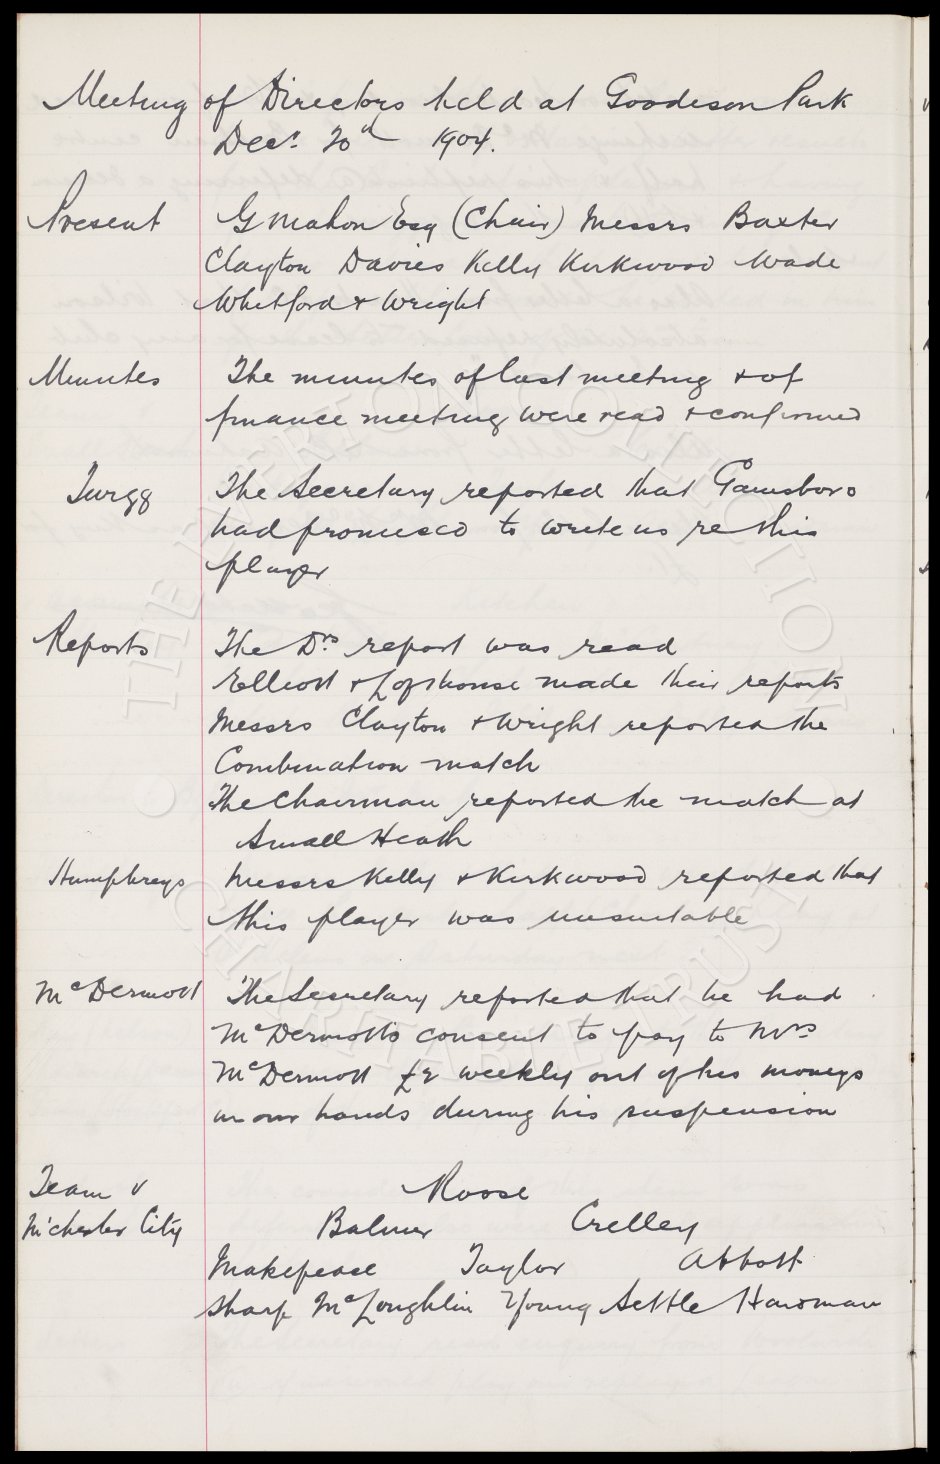 Meeting of Directors held at Goodison Park
Decr. 20th 1904.
Present G Mahon Esq (Chair) Messrs Baxter
Clayton Davies Kelly Kirkwood Wade
Whitford & Wright
Minutes The minutes of last meeting & of
finance meeting were read & confirmed
The Secretary reported that Gainsboro
had promised to write us re this
player
Reports The Drs report was read
Elliott & Lofthouse made their reports
Messrs Clayton & Wright reported the
Combination match
The Chairman reported the match at
Small Heath
Humphreys Messrs Kelly & Kirkwood reported that
this player was unsuitable
McDermott The Secretary reported that he had
McDermott's consent to pay to Mrs
McDermott £2 weekly out of his moneys
in our hands during his suspension
Team v Roose
M'chester City Balmer Crelley
Makepeace Taylor Abbott
Sharp McLoughlin Young Settle Hardman
THE EVERTON COLLECTION
CHARITABLE TRUST